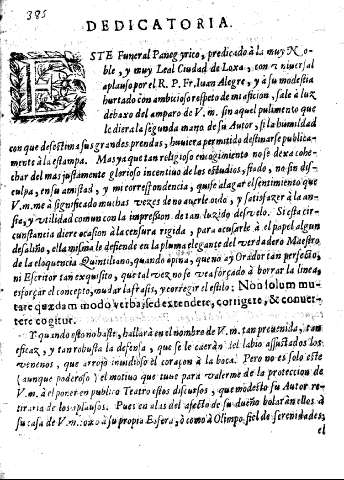 385
DEDICATORIA.
ESTE Funeral Panegyrico, predicado à la muy No-
ble, y muy Leal Ciudad de Loxa, con vniuersal
aplauso por el R. P. Fr. Iuan Alegre, y à su modestia
hurtado con ambicioso respeto de mi aficion, sale à luz
debaxo del amparo de V. m. sin aquel pulimento que
le diera la segunda mano de su Autor, si la humildad
con que desestima sus grandes prendas, huuiera permitido destinarse publica-
mente à la estampa. Mas ya que tan religioso encogimiento no se dexa cohe-
char del mas justamente glorioso incentiuo de los estudios, fiado, no sin dis-
culpa, en su amistad, y mi correspondencia, quise alagar el sentimiento que
V. m. me à significado muchas vezes de no auerle oido, y satisfazer à la an-
sia, y vtilidad comun con la impression de tan luzido desvelo. Si esta cir-
cunstancia diere ocasion à la censura rigida, para acusarle à el papel algun
desaliño, ella misma le defiende en la pluma elegante del verdadero Maestro
de la eloquencia Quintiliano, quando opina, que no ay Orador tan perfecto,
ni Escritor tan exquisito, que tal vez no se vea forçado à borrar la linea,
esforçar el concepto, mudar la frasis, y corregir el estilo: Non solum mu-
tare quædam modo verba, sed extendere, corrigere, & conuer-
tere cogitur.
Y quando esto no baste, hallarà en el nombre de V. m. tan preuenida, tan
eficaz, y tan robusta la defensa, que se le caeràn del labio assustados los
venenos, que arrojò inuidioso el coraçon à la boca. Pero no es solo este
(aunque poderoso) el motiuo que tuue para valerme de la proteccion de
V. m. à el poner en publico Teatro estos discursos, que modesto su Autor re-
tiraria de los aplausos. Pues en alas del afecto de su dueño bolaràn ellos à
su casa de V. m. como à su propia Esfera, ò como à Olimpo fiel de serenidades,
el